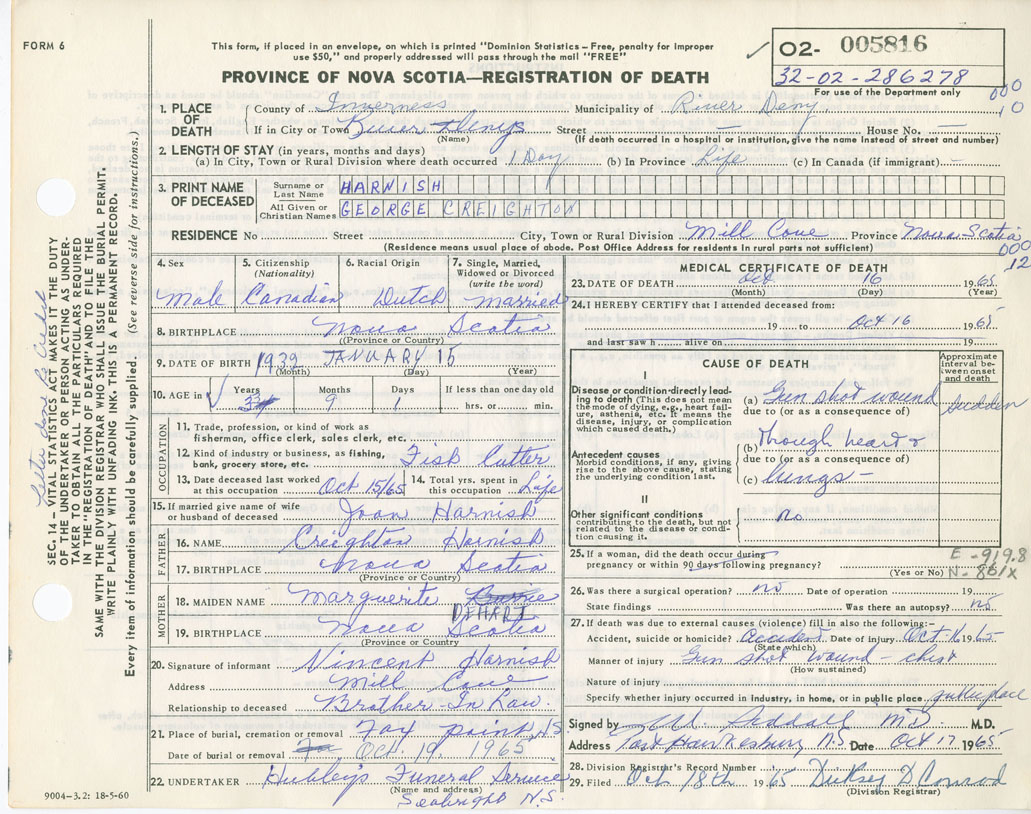 FORM 6
This form, if placed in an envelope, on which is printed "Dominion Statistics – Free, penalty for improper
use $50," and properly addressed will pass through the mail "FREE"
02- 005816
32-02-286278
For use of the Department only
PROVINCE OF NOVA SCOTIA—REGISTRATION OF DEATH
000
10
1. PLACE OF DEATH
County of Inverness Municipality of River Deny
If in City or Town River Denys Street — House No. —
(Name) (If death occurred in a hospital or institution, give the name instead of street and number)
2. LENGTH OF STAY (in years, months and days)
(a) In City, Town or Rural Division where death occurred 1 Day (b) In Province Life (c) In Canada (if immigrant) –
3. PRINT NAME OF DECEASED
Surname or Last Name HARNISH
All Given or Christian Names GEORGE CREIGHTON
RESIDENCE No Street City, Town or Rural Division Mill Cove Province Nova Scotia
(Residence means usual place of abode. Post Office Address for residents in rural parts not sufficient)
000
12
4. Sex Male
5. Citizenship (Nationality) Canadian
6. Racial Origin Dutch
7. Single, Married, Widowed or Divorced (write the word) Married
8. BIRTHPLACE Nova Scotia
(Province or Country)
9. DATE OF BIRTH 1932 JANUARY 15
(Month) (Day) (Year)
10. AGE in Years Months 9 Days 1 If less than one day old hrs. or min.
OCCUPATION
11. Trade, profession, or kind of work as
fisherman, office clerk, sales clerk, etc.
12. Kind of industry or business, as fishing,
bank, grocery store, etc. Fish Cutter
13. Date deceased last worked at this occupation Oct 15/65
14. Total yrs. spent in this occupation Life
15. If married give name of wife
or husband of deceased Joan Harnish
FATHER
16. NAME Creighton Harnish
17. BIRTHPLACE Nova Scotia
(Province or Country)
MOTHER
18. MAIDEN NAME Marguerite
DEHART
19. BIRTHPLACE Nova Scotia
(Province or Country)
20. Signature of informant Vincent Harnish
Address Mill Cove
Relationship to deceased Brother-In Law
21. Place of burial, cremation or removal Fox Point, NS
Date of burial or removal Oct 19, 1965
22. UNDERTAKER Hubley's Funeral Service
(Name and address)
Seabright N.S.
9004-3.2: 18-5-60
MEDICAL CERTIFICATE OF DEATH
23. DATE OF DEATH Oct 16 1965
(Month) (Day) (Year)
24. I HEREBY CERTIFY that I attended deceased from:
19 to Oct 16 1965
and last saw h alive on 19
CAUSE OF DEATH
Approximate interval between onset and death
I
Disease or condition directly leading to death (This does not mean the mode of dying, e.g., heart failure, asthenia, etc. It means the disease, injury, or complication which caused death.)
(a) Gun shot wound sudden
due to (or as a consequence of)
Antecedent causes
Morbid conditions, if any, giving rise to the above cause, stating the underlying condition last.
(b) through heart &
due to (or as a consequence of)
(c) lungs –
II
Other significant conditions
contributing to the death, but not related to the disease or condition causing it.
no
25. If a woman, did the death occur during
pregnancy or within 90 days following pregnancy?
(Yes or No)
E-919.8
N-861X
26. Was there a surgical operation? no Date of operation 19
State findings Was there an autopsy? no
27. If death was due to external causes (violence) fill in also the following:-
Accident, suicide or homicide? Accident Date of injury Oct 16 1965
(State which)
Manner of injury Gun shot wound – chest
(How sustained)
Nature of injury
Specify whether injury occurred in industry, in home, or in public place public place
Signed by M.D. M.D.
Address Port Hawkesbury N.S Date Oct 17 1965
28. Division Registrar's Record Number
29. Filed Oct 18th 1965 D Conrod
(Division Registrar)
SEC. 14 – VITAL STATISTICS ACT MAKES IT THE DUTY
OF THE UNDERTAKER OR PERSON ACTING AS UNDER-
TAKER TO OBTAIN ALL THE PARTICULARS REQUIRED
IN THE "REGISTRATION OF DEATH" AND TO FILE THE
SAME WITH THE DIVISION REGISTRAR WHO SHALL ISSUE THE BURIAL PERMIT.
WRITE PLAINLY WITH UNFADING INK. THIS IS A PERMANENT RECORD.
Every item of information should be carefully supplied. (See reverse side for instructions.)